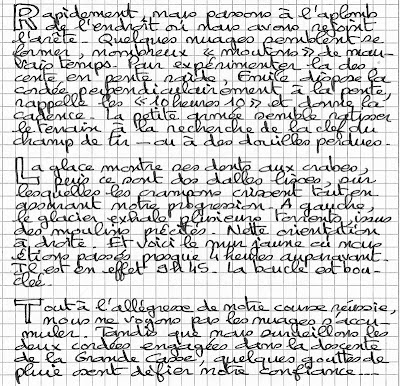 Rapidement, nous passons à l'aplomb
de l'endroit où nous avons rejoint
l'arête. Quelques nuages semblent se
former, nombreux « moutons » de mau-
vais temps. Pour expérimenter la des-
cente en pente raide, Emile dispose la
cordée perpendiculairement à la pente,
rappelle les « 10 heures 10 » et donne la
cadence. La petite armée semble ratisser
le terrain à la recherche de la clef du
champ de tir — ou à des douilles perdues.
La glace montre ses dents aux crabes,
puis ce sont des dalles lisses, sur
lesquelles les crampons crissent tout en
assurant notre progression. A gauche,
le glacier exhale plusieurs torrents, issus
des moulins précités. Nette orientation
à droite. Et voici le mur jaune où nous
étions passés, presque 4 heures auparavant.
Il est en effet 9h45. La boucle est bou-
clée.
Tout à l'allégresse de notre course réussie,
nous ne voyons pas les nuages s'accu-
muler. Tandis que nous surveillons les
deux cordées engagées dans la descente
de la Grande Casse, quelques gouttes de
pluie vont défier notre confiance ...